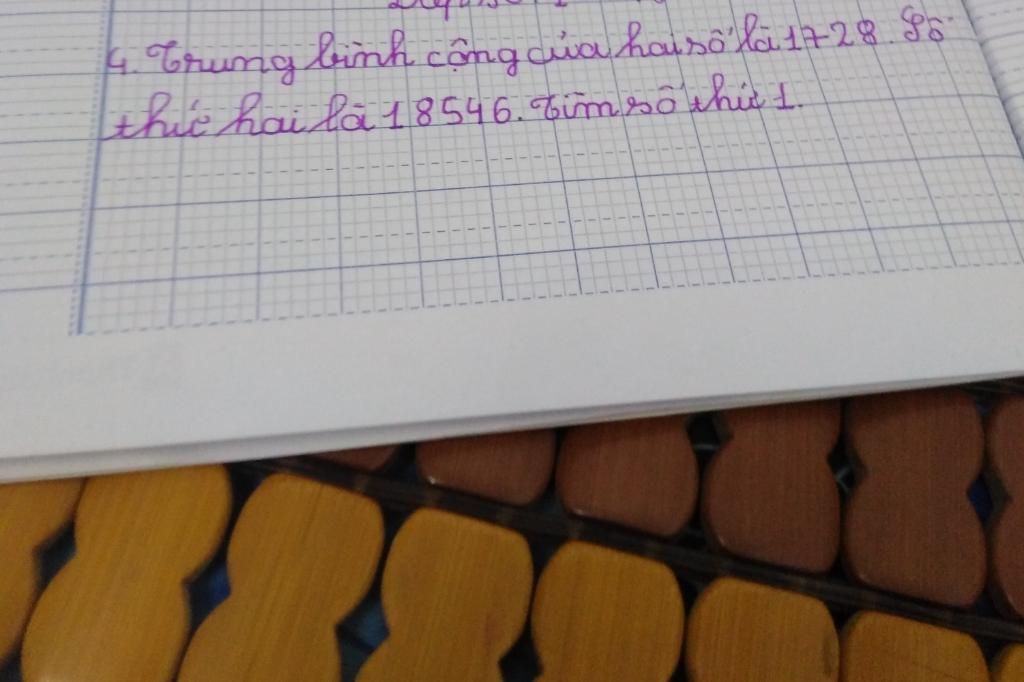 4. Trung bình cộng của hai số là 1728. Số
thứ hai là 18546. Tìm số thứ 1.